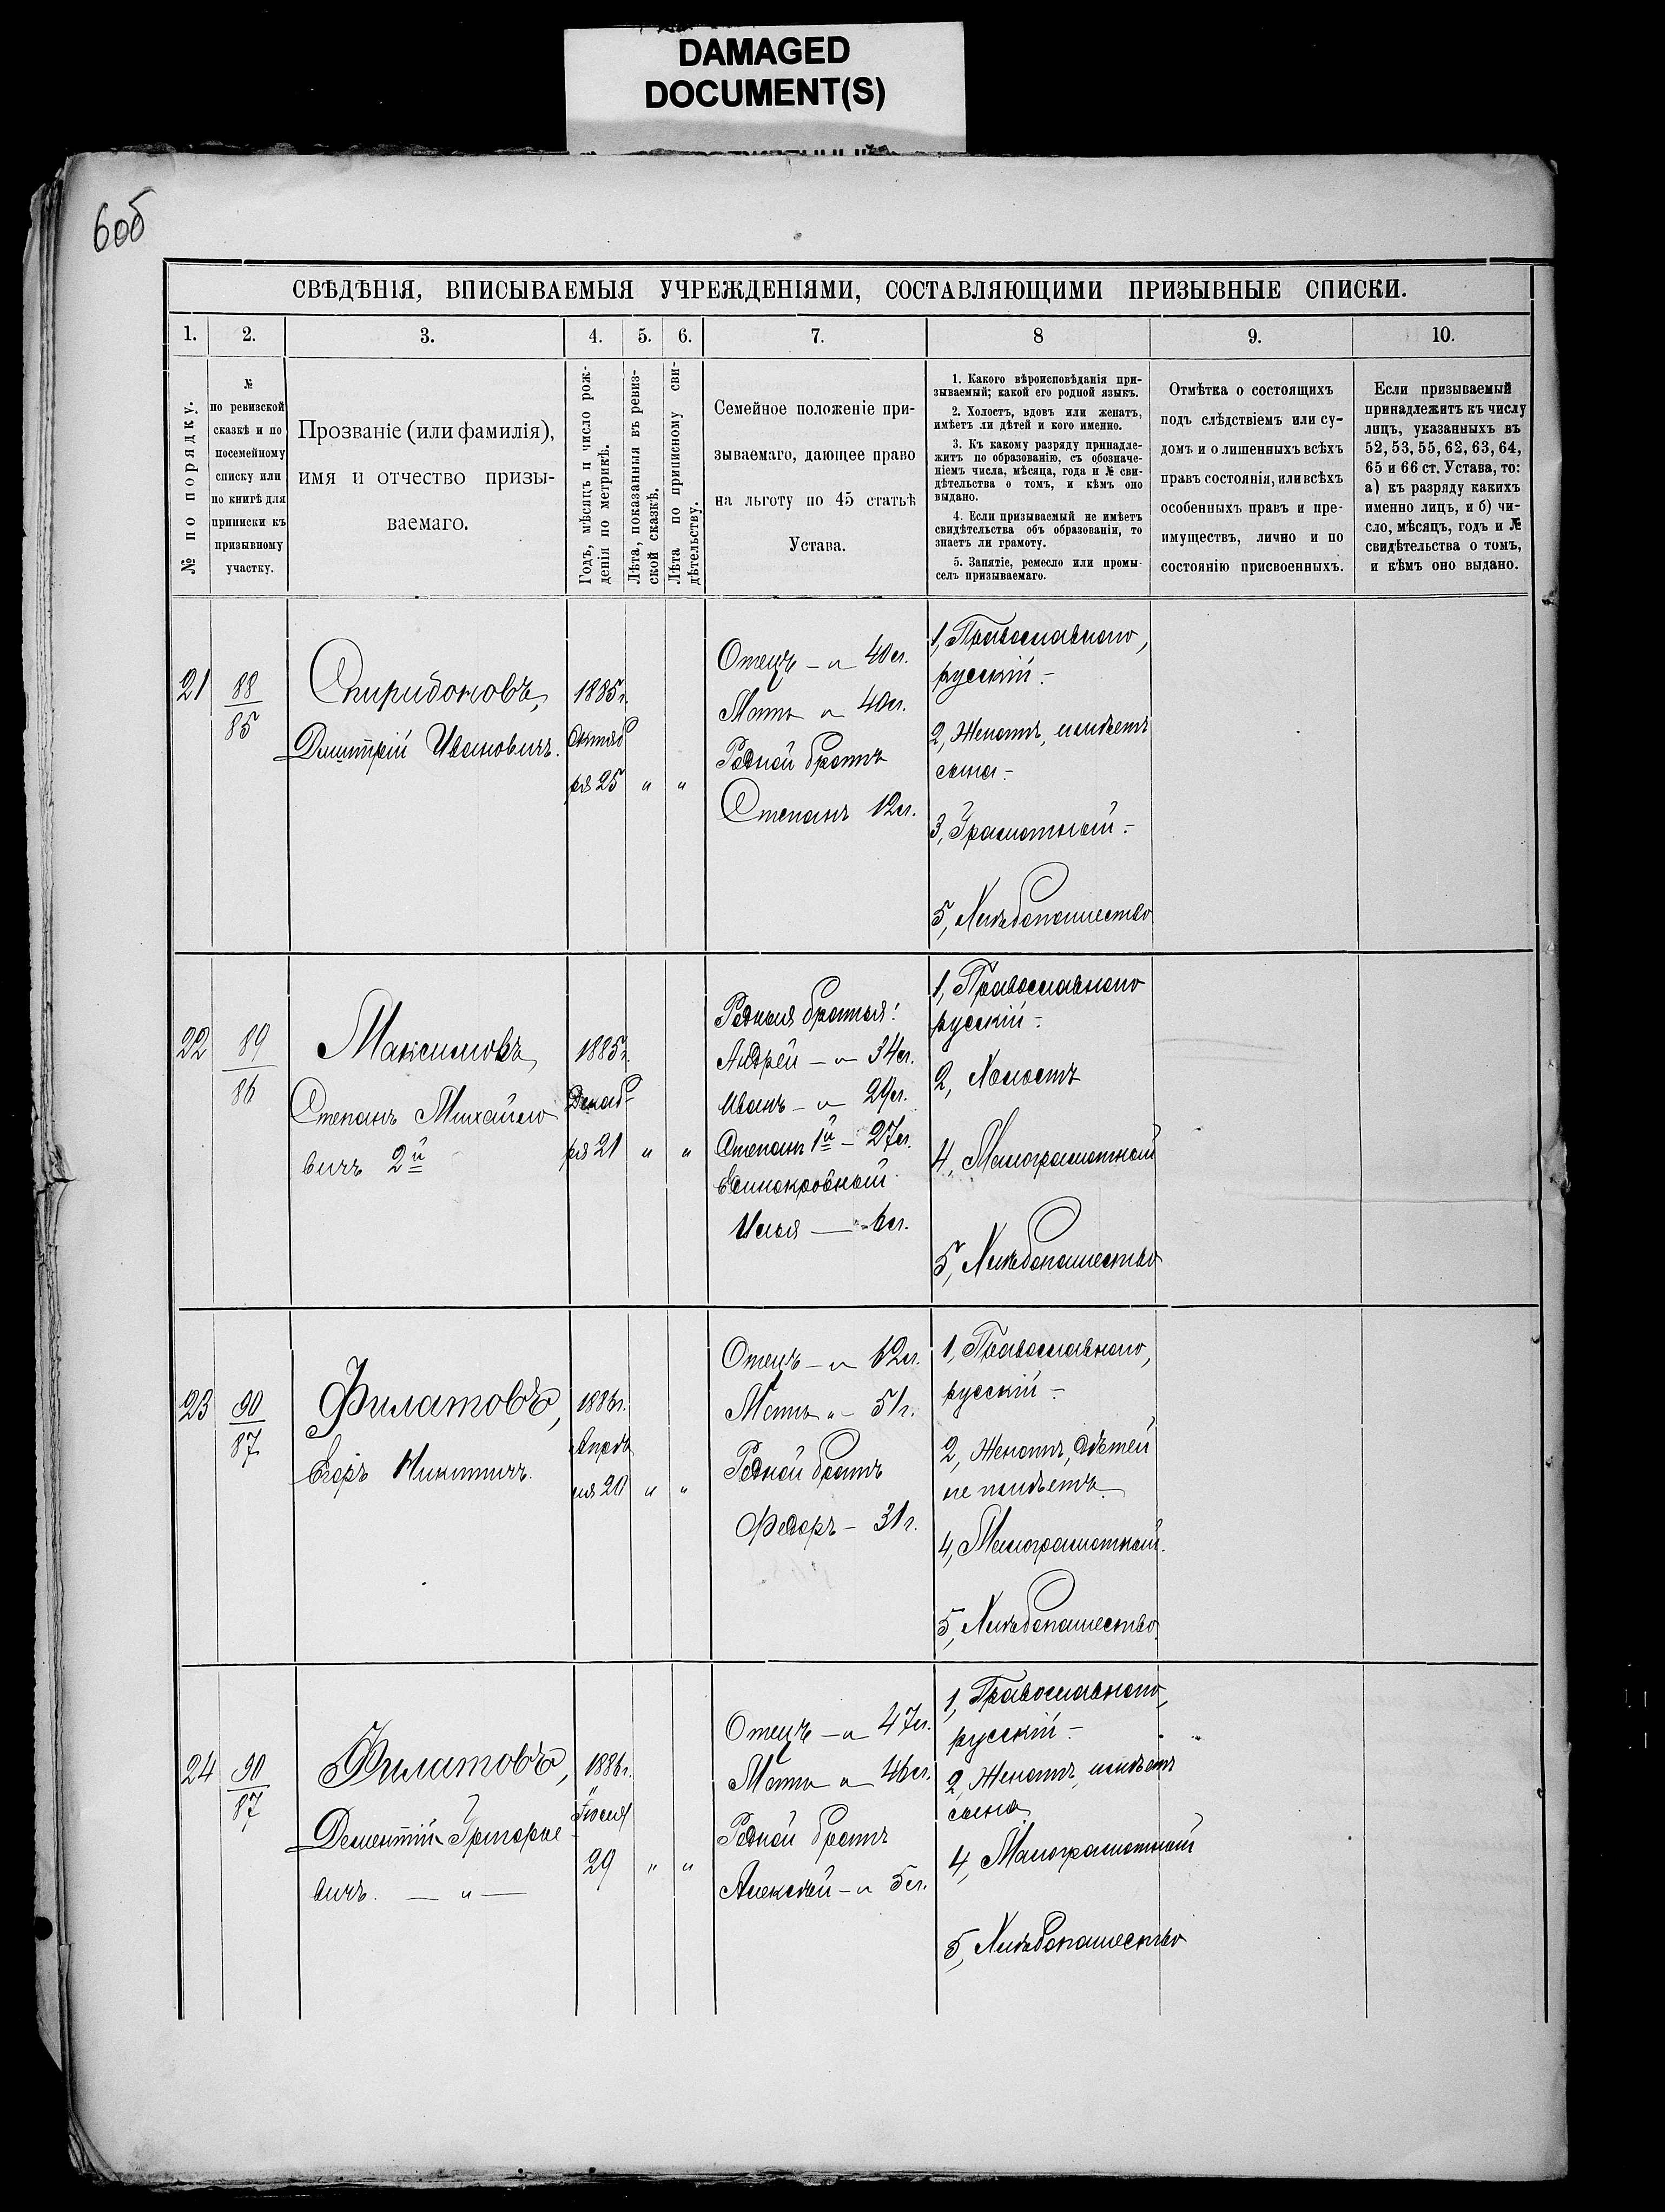 DAMAGED
DOCUMENT(S)
6об
СВѢДѢНІЯ, ВПИСЫВАЕМЫЯ УЧРЕЖДЕНІЯМИ, СОСТАВЛЯЮЩИМИ ПРИЗЫВНЫЕ СПИСКИ.
1.
2.
3.
4.
5.
6.
7.
8
9.
10.
№ по порядку.
№
по ревизской
сказкѣ и по
посемейному
списку или
по книгѣ для
приписки къ
призывному
участку.
Прозваніе (или фамилія),
имя и отчество призы-
ваемаго.
Годъ, мѣсяцъ и число рож-
денія по метрикѣ.
Лѣта, показанныя въ ревиз-
ской сказкѣ.
Лѣта по приписному сви-
дѣтельству.
Семейное положеніе при-
зываемаго, дающее право
на льготу по 45 статьѣ
Устава.
1. Какого вѣроисповѣданія при-
зываемый; какой его родной языкъ.
2. Холостъ, вдовъ или женатъ,
имѣетъ ли дѣтей и кого именно.
3. Къ какому разряду принадле-
житъ по образованію, съ обозначе-
ніемъ числа, мѣсяца, года и № сви-
дѣтельства о томъ, и кѣмъ оно
выдано.
4. Если призываемый не имѣетъ
свидѣтельства объ образованіи, то
знаетъ ли грамоту.
5. Занятіе, ремесло или промы-
селъ призываемаго.
Отмѣтка о состоящихъ
подъ слѣдствіемъ или су-
домъ и о лишенныхъ всѣхъ
правъ состоянія, или всѣхъ
особенныхъ правъ и пре-
имуществъ, лично и по
состоянію присвоенныхъ.
Если призываемый
принадлежитъ къ числу
лицъ, указанныхъ въ
52, 53, 55, 62, 63, 64,
65 и 66 ст. Устава, то:
а) къ разряду какихъ
именно лицъ, и б) чи-
сло, мѣсяцъ, годъ и №
свидѣтельства о томъ,
и кѣмъ оно выдано.
21
88
85
Спиридоновъ,
Дмитрій Ивановичъ.
1885г.
Октяб
ря 25
"
"
Отецъ – " 40л.
Мать " 40л.
Родной братъ
Степанъ 12л.
1, Православнаго,
русскій –
2, Женатъ, имѣетъ
сына –
3, Грамотный –
5, Хлѣбопашество
22
89
86
Максимовъ,
Степанъ Михайло
вичъ 2й
1885г.
Декаб-
ря 21
"
"
Родныя братья:
Андрей – " 34л.
Иванъ – " 29л.
Степанъ 1й – 27л.
единокровный
Илья — 6л.
1, Православнаго
русскій –
2, Холостъ
4, Малограмотный
5, Хлѣбопашество
23
90
87
Филатовъ,
Егоръ Никитичъ.
1886г.
Апрѣ
ля 20
"
"
Отецъ – " 62л.
Мать " – 51г.
Родной братъ
Федоръ – 31г.
1, Православнаго,
русскій –
2, Женатъ, дѣтей
не имѣетъ
4, Малограмотный.
5, Хлѣбопашество.
24
90
87
Филатовъ,
Дементій Григорье
вичъ. — " —
1886г.
Іюля
29
"
"
Отецъ – " 47л.
Мать " 46л.
Родной братъ
Алексѣй – " 5л.
1, Православнаго,
русскій –
2, Женатъ, имѣетъ
сына
4, Малограмотный
5, Хлѣбопашество